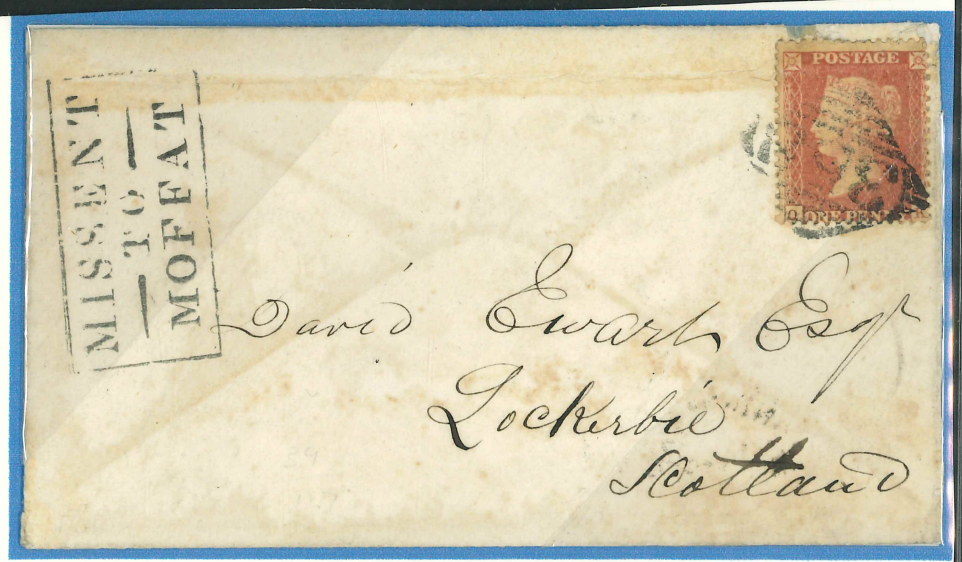 MISSENT
TO
MOFFAT
POSTAGE
ONE PENNY
David Ewart Esqr
Lockerbie
Scotland